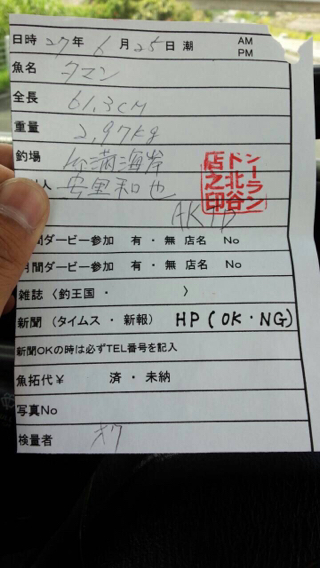 日時 27年 6月 25日 潮 AM
PM
魚名 タマン
全長 61.3cm
重量 2,97kg
釣場 糸満海岸
人 安里和也
ドーラン
北谷
店之印
間ダービー参加 有・無 店名 No
月間ダービー参加 有・無 店名 No
雑誌〈釣王国・ 〉
新聞(タイムス・新報) HP(OK・NG)
新聞OKの時は必ずTEL番号を記入
魚拓代¥ 済・未納
写真No
検量者